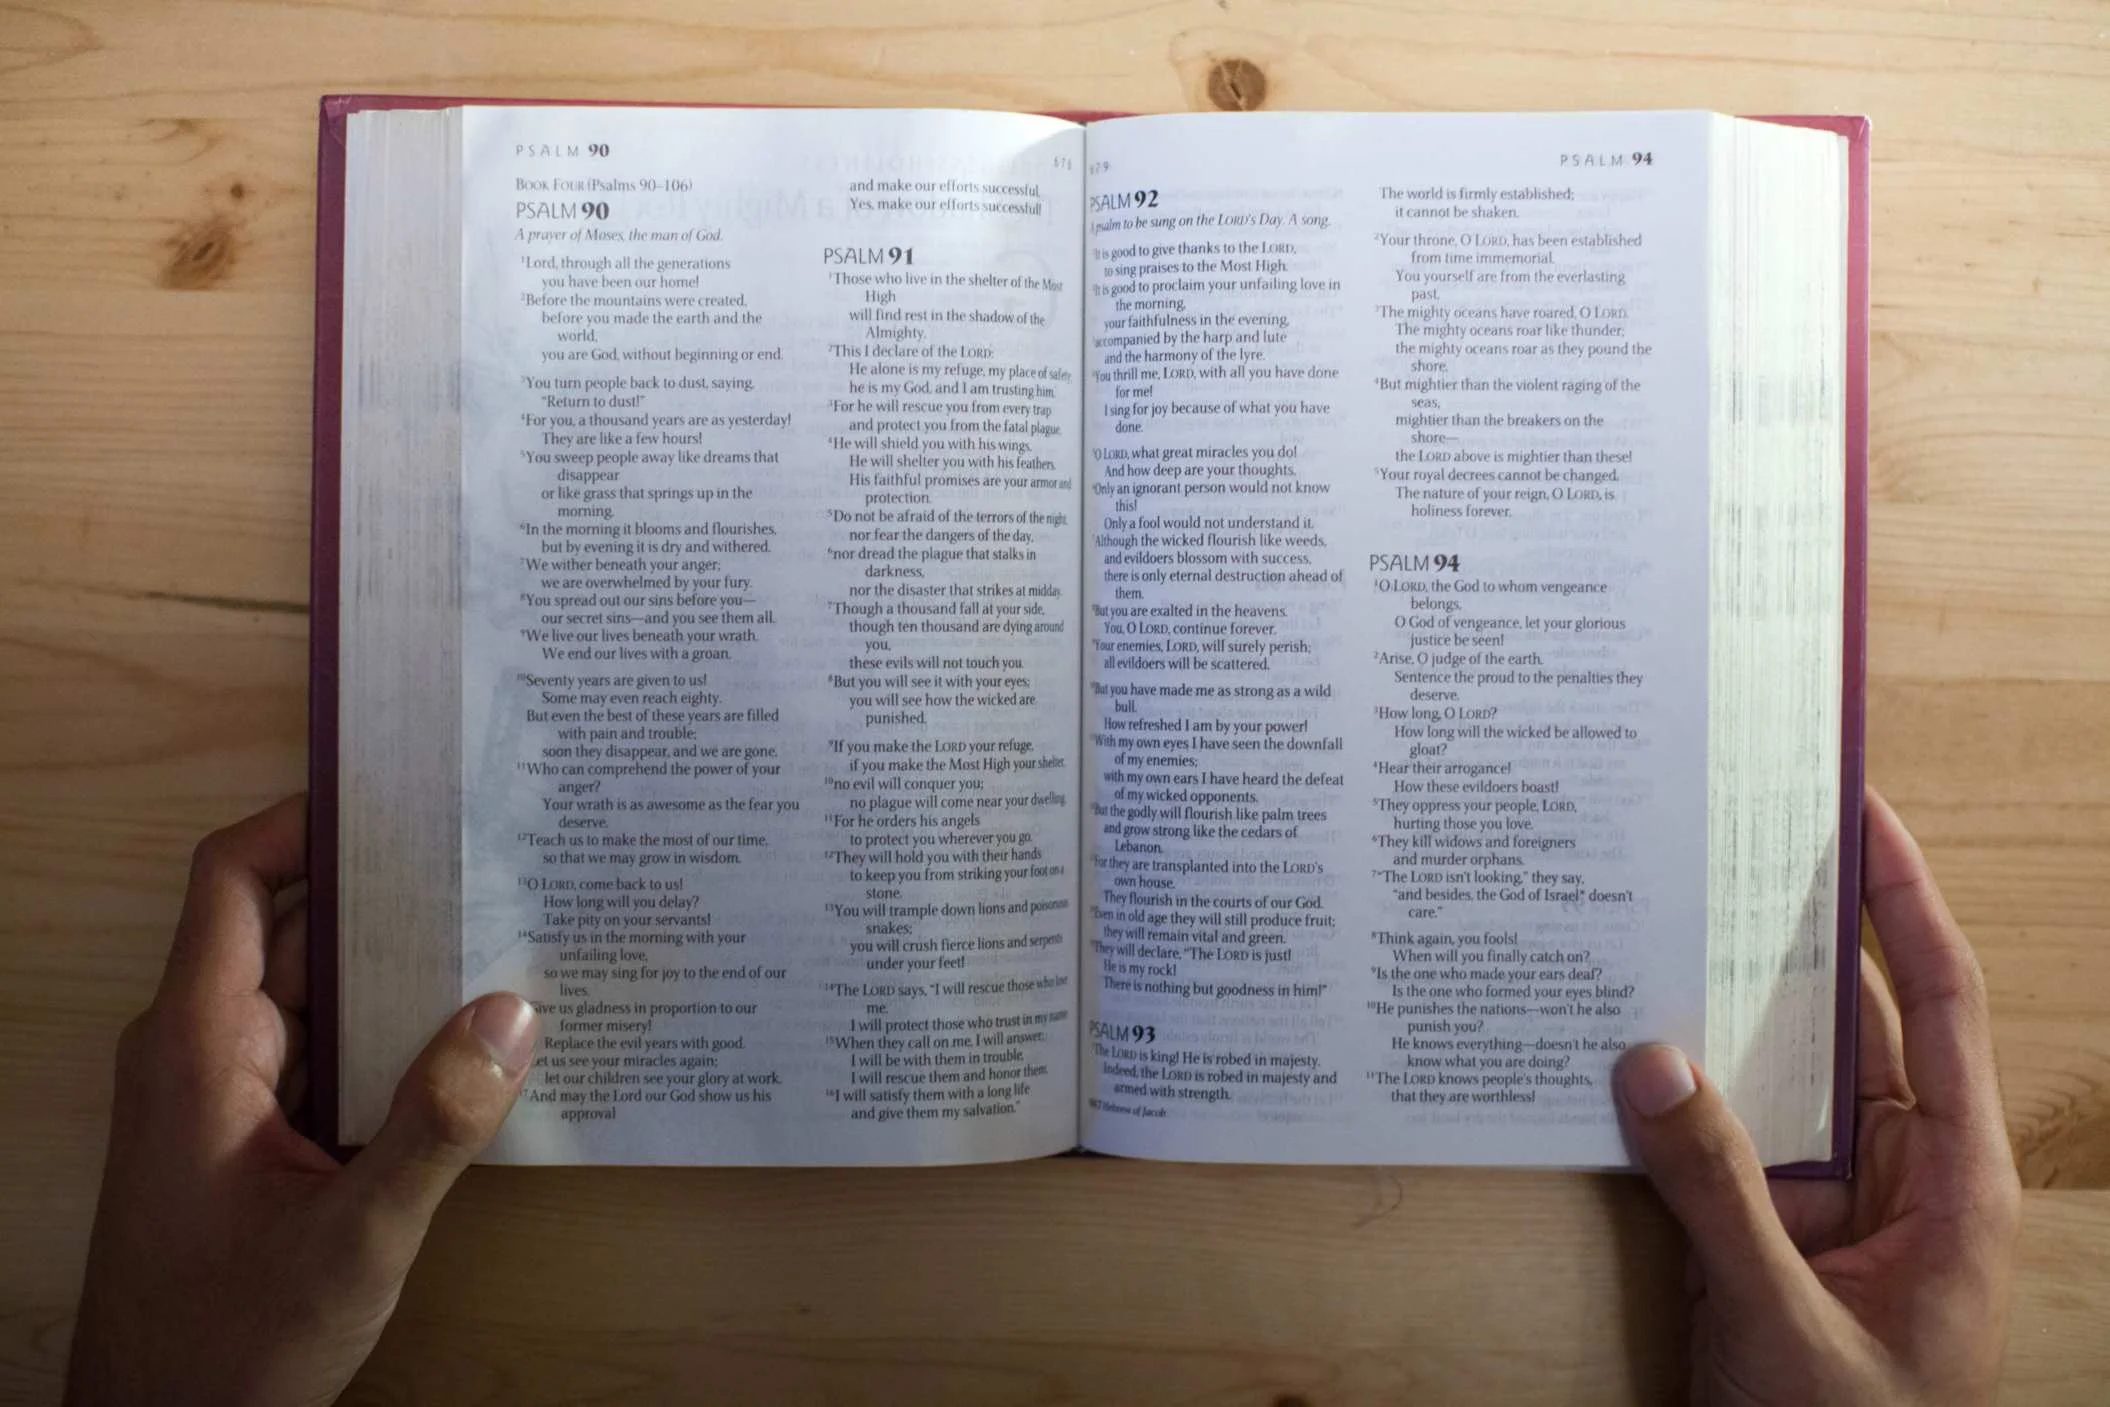 PSALM 90
BOOK FOUR (Psalms 90–106)
PSALM 90
A prayer of Moses, the man of God.
1Lord, through all the generations
you have been our home!
2Before the mountains were created,
before you made the earth and the
world,
you are God, without beginning or end.
3You turn people back to dust, saying,
“Return to dust!”
4For you, a thousand years are as yesterday!
They are like a few hours!
5You sweep people away like dreams that
disappear
or like grass that springs up in the
morning.
6In the morning it blooms and flourishes,
but by evening it is dry and withered.
7We wither beneath your anger;
we are overwhelmed by your fury.
8You spread out our sins before you—
our secret sins—and you see them all.
9We live our lives beneath your wrath.
We end our lives with a groan.
10Seventy years are given to us!
Some may even reach eighty.
But even the best of these years are filled
with pain and trouble;
soon they disappear, and we are gone.
11Who can comprehend the power of your
anger?
Your wrath is as awesome as the fear you
deserve.
12Teach us to make the most of our time,
so that we may grow in wisdom.
13O LORD, come back to us!
How long will you delay?
Take pity on your servants!
14Satisfy us in the morning with your
unfailing love,
so we may sing for joy to the end of our
lives.
Give us gladness in proportion to our
former misery!
Replace the evil years with good.
Let us see your miracles again;
let our children see your glory at work.
17And may the Lord our God show us his
approval
and make our efforts successful.
Yes, make our efforts successful!
PSALM 91
1Those who live in the shelter of the Most
High
will find rest in the shadow of the
Almighty.
2This I declare of the LORD:
He alone is my refuge, my place of safety;
he is my God, and I am trusting him.
3For he will rescue you from every trap
and protect you from the fatal plague.
4He will shield you with his wings.
He will shelter you with his feathers.
His faithful promises are your armor and
protection.
5Do not be afraid of the terrors of the night,
nor fear the dangers of the day,
6nor dread the plague that stalks in
darkness,
nor the disaster that strikes at midday.
7Though a thousand fall at your side,
though ten thousand are dying around
you,
these evils will not touch you.
8But you will see it with your eyes;
you will see how the wicked are
punished.
9If you make the LORD your refuge,
if you make the Most High your shelter,
10no evil will conquer you;
no plague will come near your dwelling.
11For he orders his angels
to protect you wherever you go.
12They will hold you with their hands
to keep you from striking your foot on a
stone.
13You will trample down lions and poisonous
snakes;
you will crush fierce lions and serpents
under your feet!
14The LORD says, “I will rescue those who love
me.
I will protect those who trust in my name.
15When they call on me, I will answer;
I will be with them in trouble.
I will rescue them and honor them.
16I will satisfy them with a long life
and give them my salvation.”
679
PSALM 94
PSALM 92
A psalm to be sung on the LORD’s Day. A song.
It is good to give thanks to the LORD,
to sing praises to the Most High.
It is good to proclaim your unfailing love in
the morning,
your faithfulness in the evening,
accompanied by the harp and lute
and the harmony of the lyre.
You thrill me, LORD, with all you have done
for me!
I sing for joy because of what you have
done.
O LORD, what great miracles you do!
And how deep are your thoughts.
Only an ignorant person would not know
this!
Only a fool would not understand it.
Although the wicked flourish like weeds,
and evildoers blossom with success,
there is only eternal destruction ahead of
them.
But you are exalted in the heavens.
You, O LORD, continue forever.
Your enemies, LORD, will surely perish;
all evildoers will be scattered.
But you have made me as strong as a wild
bull.
How refreshed I am by your power!
With my own eyes I have seen the downfall
of my enemies;
with my own ears I have heard the defeat
of my wicked opponents.
But the godly will flourish like palm trees
and grow strong like the cedars of
Lebanon.
For they are transplanted into the LORD’s
own house.
They flourish in the courts of our God.
Even in old age they will still produce fruit;
they will remain vital and green.
They will declare, “The LORD is just!
He is my rock!
There is nothing but goodness in him!”
PSALM 93
The LORD is king! He is robed in majesty.
Indeed, the LORD is robed in majesty and
armed with strength.
94:7 Hebrew of Jacob.
The world is firmly established;
it cannot be shaken.
2Your throne, O LORD, has been established
from time immemorial.
You yourself are from the everlasting
past.
3The mighty oceans have roared, O LORD.
The mighty oceans roar like thunder;
the mighty oceans roar as they pound the
shore.
4But mightier than the violent raging of the
seas,
mightier than the breakers on the
shore—
the LORD above is mightier than these!
5Your royal decrees cannot be changed.
The nature of your reign, O LORD, is
holiness forever.
PSALM 94
1O LORD, the God to whom vengeance
belongs,
O God of vengeance, let your glorious
justice be seen!
2Arise, O judge of the earth.
Sentence the proud to the penalties they
deserve.
3How long, O LORD?
How long will the wicked be allowed to
gloat?
4Hear their arrogance!
How these evildoers boast!
5They oppress your people, LORD,
hurting those you love.
6They kill widows and foreigners
and murder orphans.
7“The LORD isn’t looking,” they say,
“and besides, the God of Israel* doesn’t
care.”
8Think again, you fools!
When will you finally catch on?
9Is the one who made your ears deaf?
Is the one who formed your eyes blind?
10He punishes the nations—won’t he also
punish you?
He knows everything—doesn’t he also
know what you are doing?
11The LORD knows people’s thoughts,
that they are worthless!